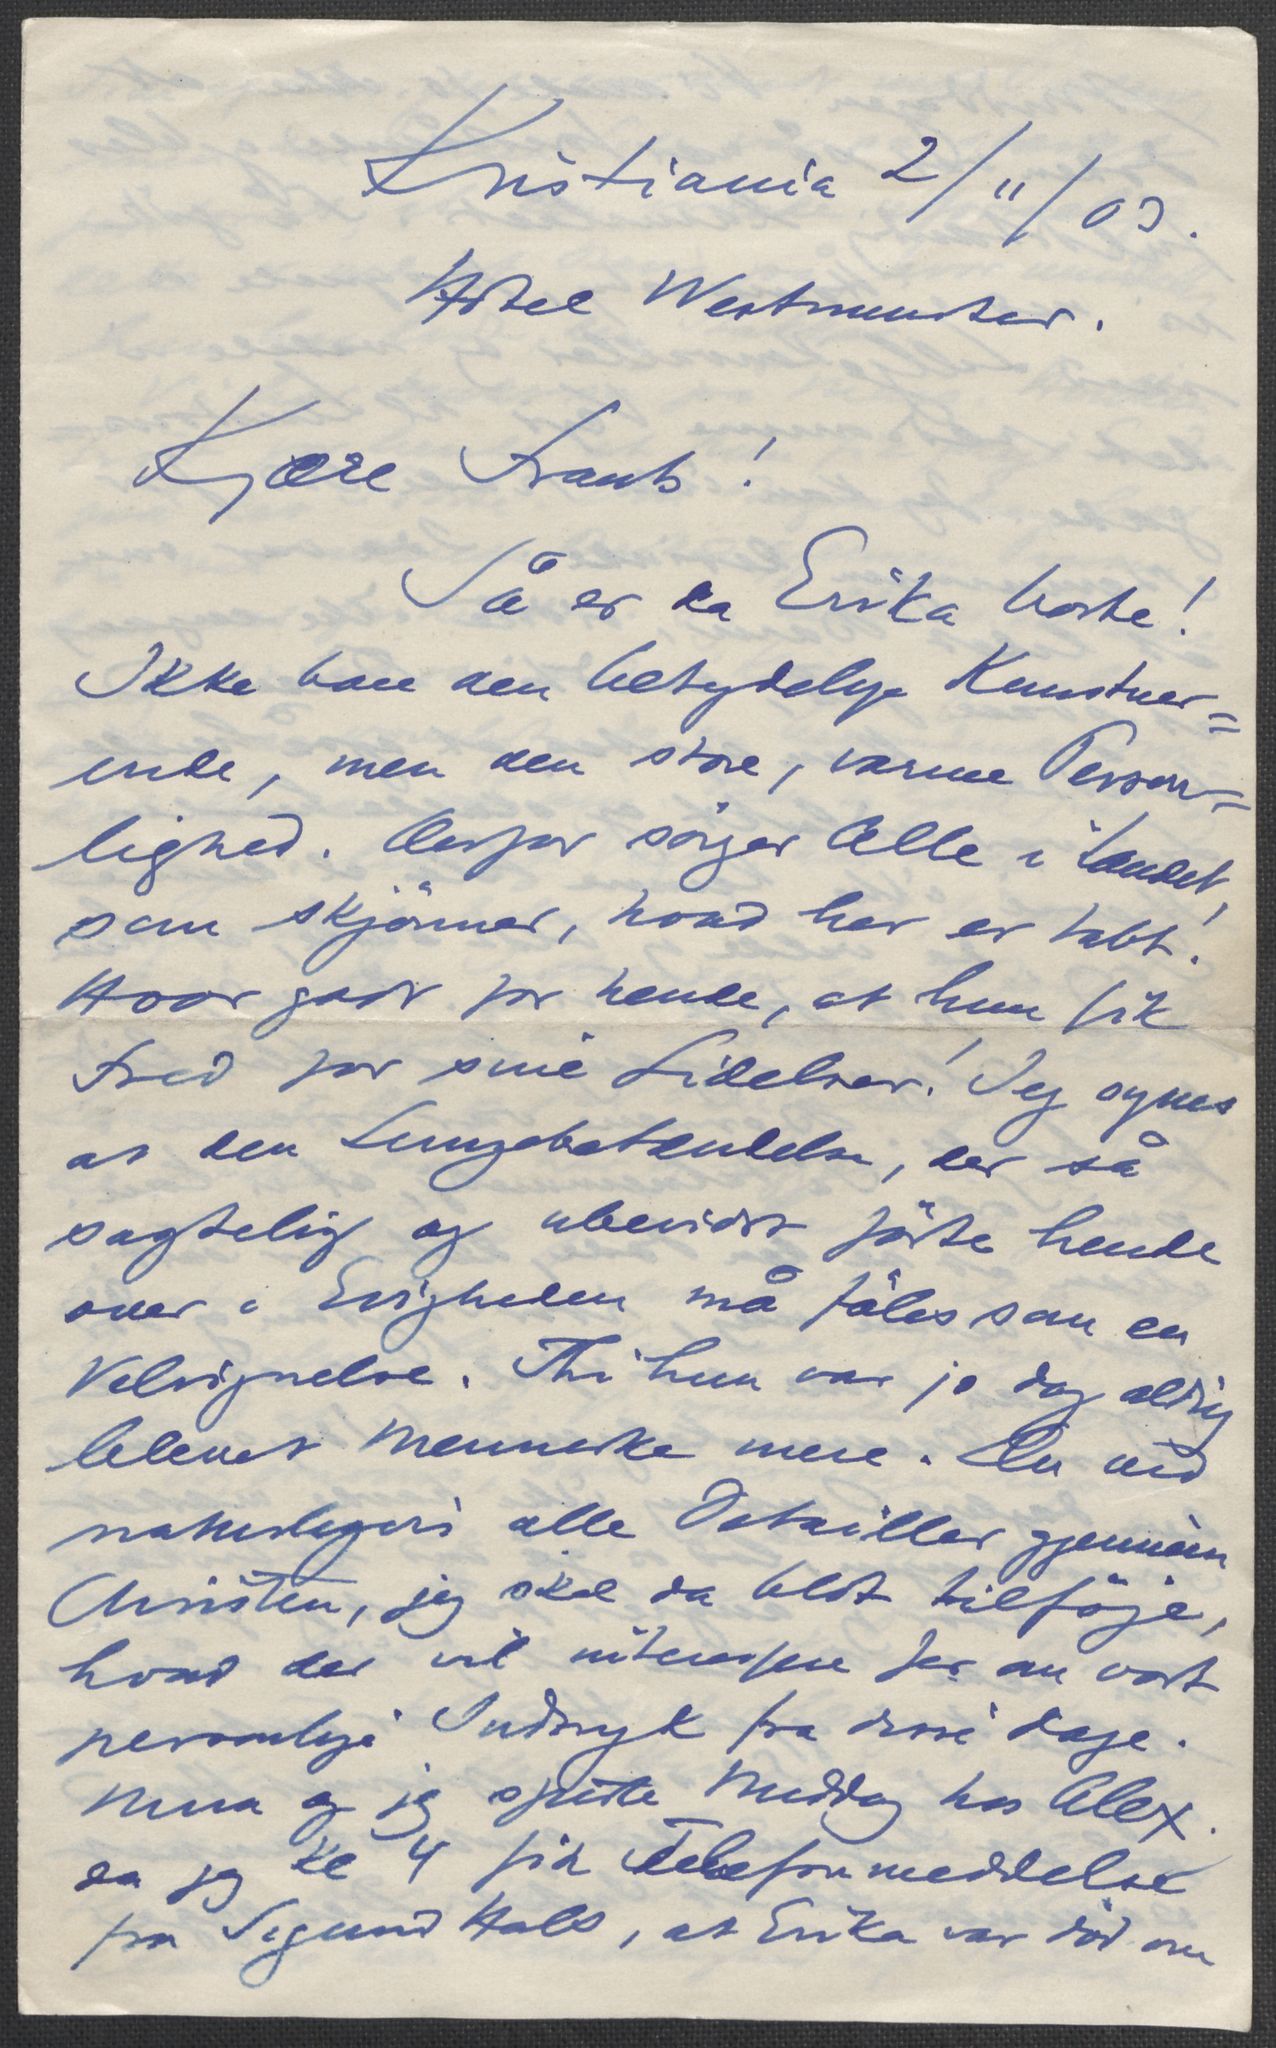 Kristiania 2/11/03.
Hôtel Westminster.
Kjære Frants!
Så er da Erika borte!
Ikke bare den betydelige Kunstner=
inde, men den store, varme Person=
lighed. Derfor sörger Alle i Landet,
som skjönner, hvad her er tabt!
Hvor godt for hende, at hun fik
Fred for sine Lidelser! Jeg synes
at den Lungebetændelse, der så
sagtelig og ubevidst förte hende
over i Evigheden må föles som en
Velsignelse. Thi hun var jo dog aldrig
blevet Menneske mere. Du ved
naturligvis alle Detailler gjennem
Christen, jeg skal da blot tilföje,
hvad der vil interessere Jer om vort
personlige Indtryk fra disse Dage.
Nina og jeg spiste Middag hos Alex.
da jeg Kl 4 fik Telefonmeddelse
fra Sigurd Hals, at Erika var död om